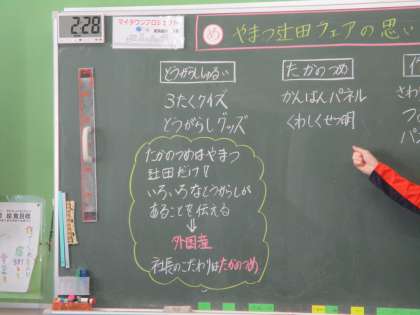 2:28
マイタウンプロジェクト
め やまつ辻田ウェアの思い
とうがらししゅるい
3たくクイズ
とうがらしグッズ
たかのつめはやまつ
辻田だけ!!
いろいろなとうがらしが
あることを伝える
⇓
外国産
社長のこだわりはたかのつめ
たかのつめ
かんばんパネル
くわしくせつ明
さわ
つ
パン